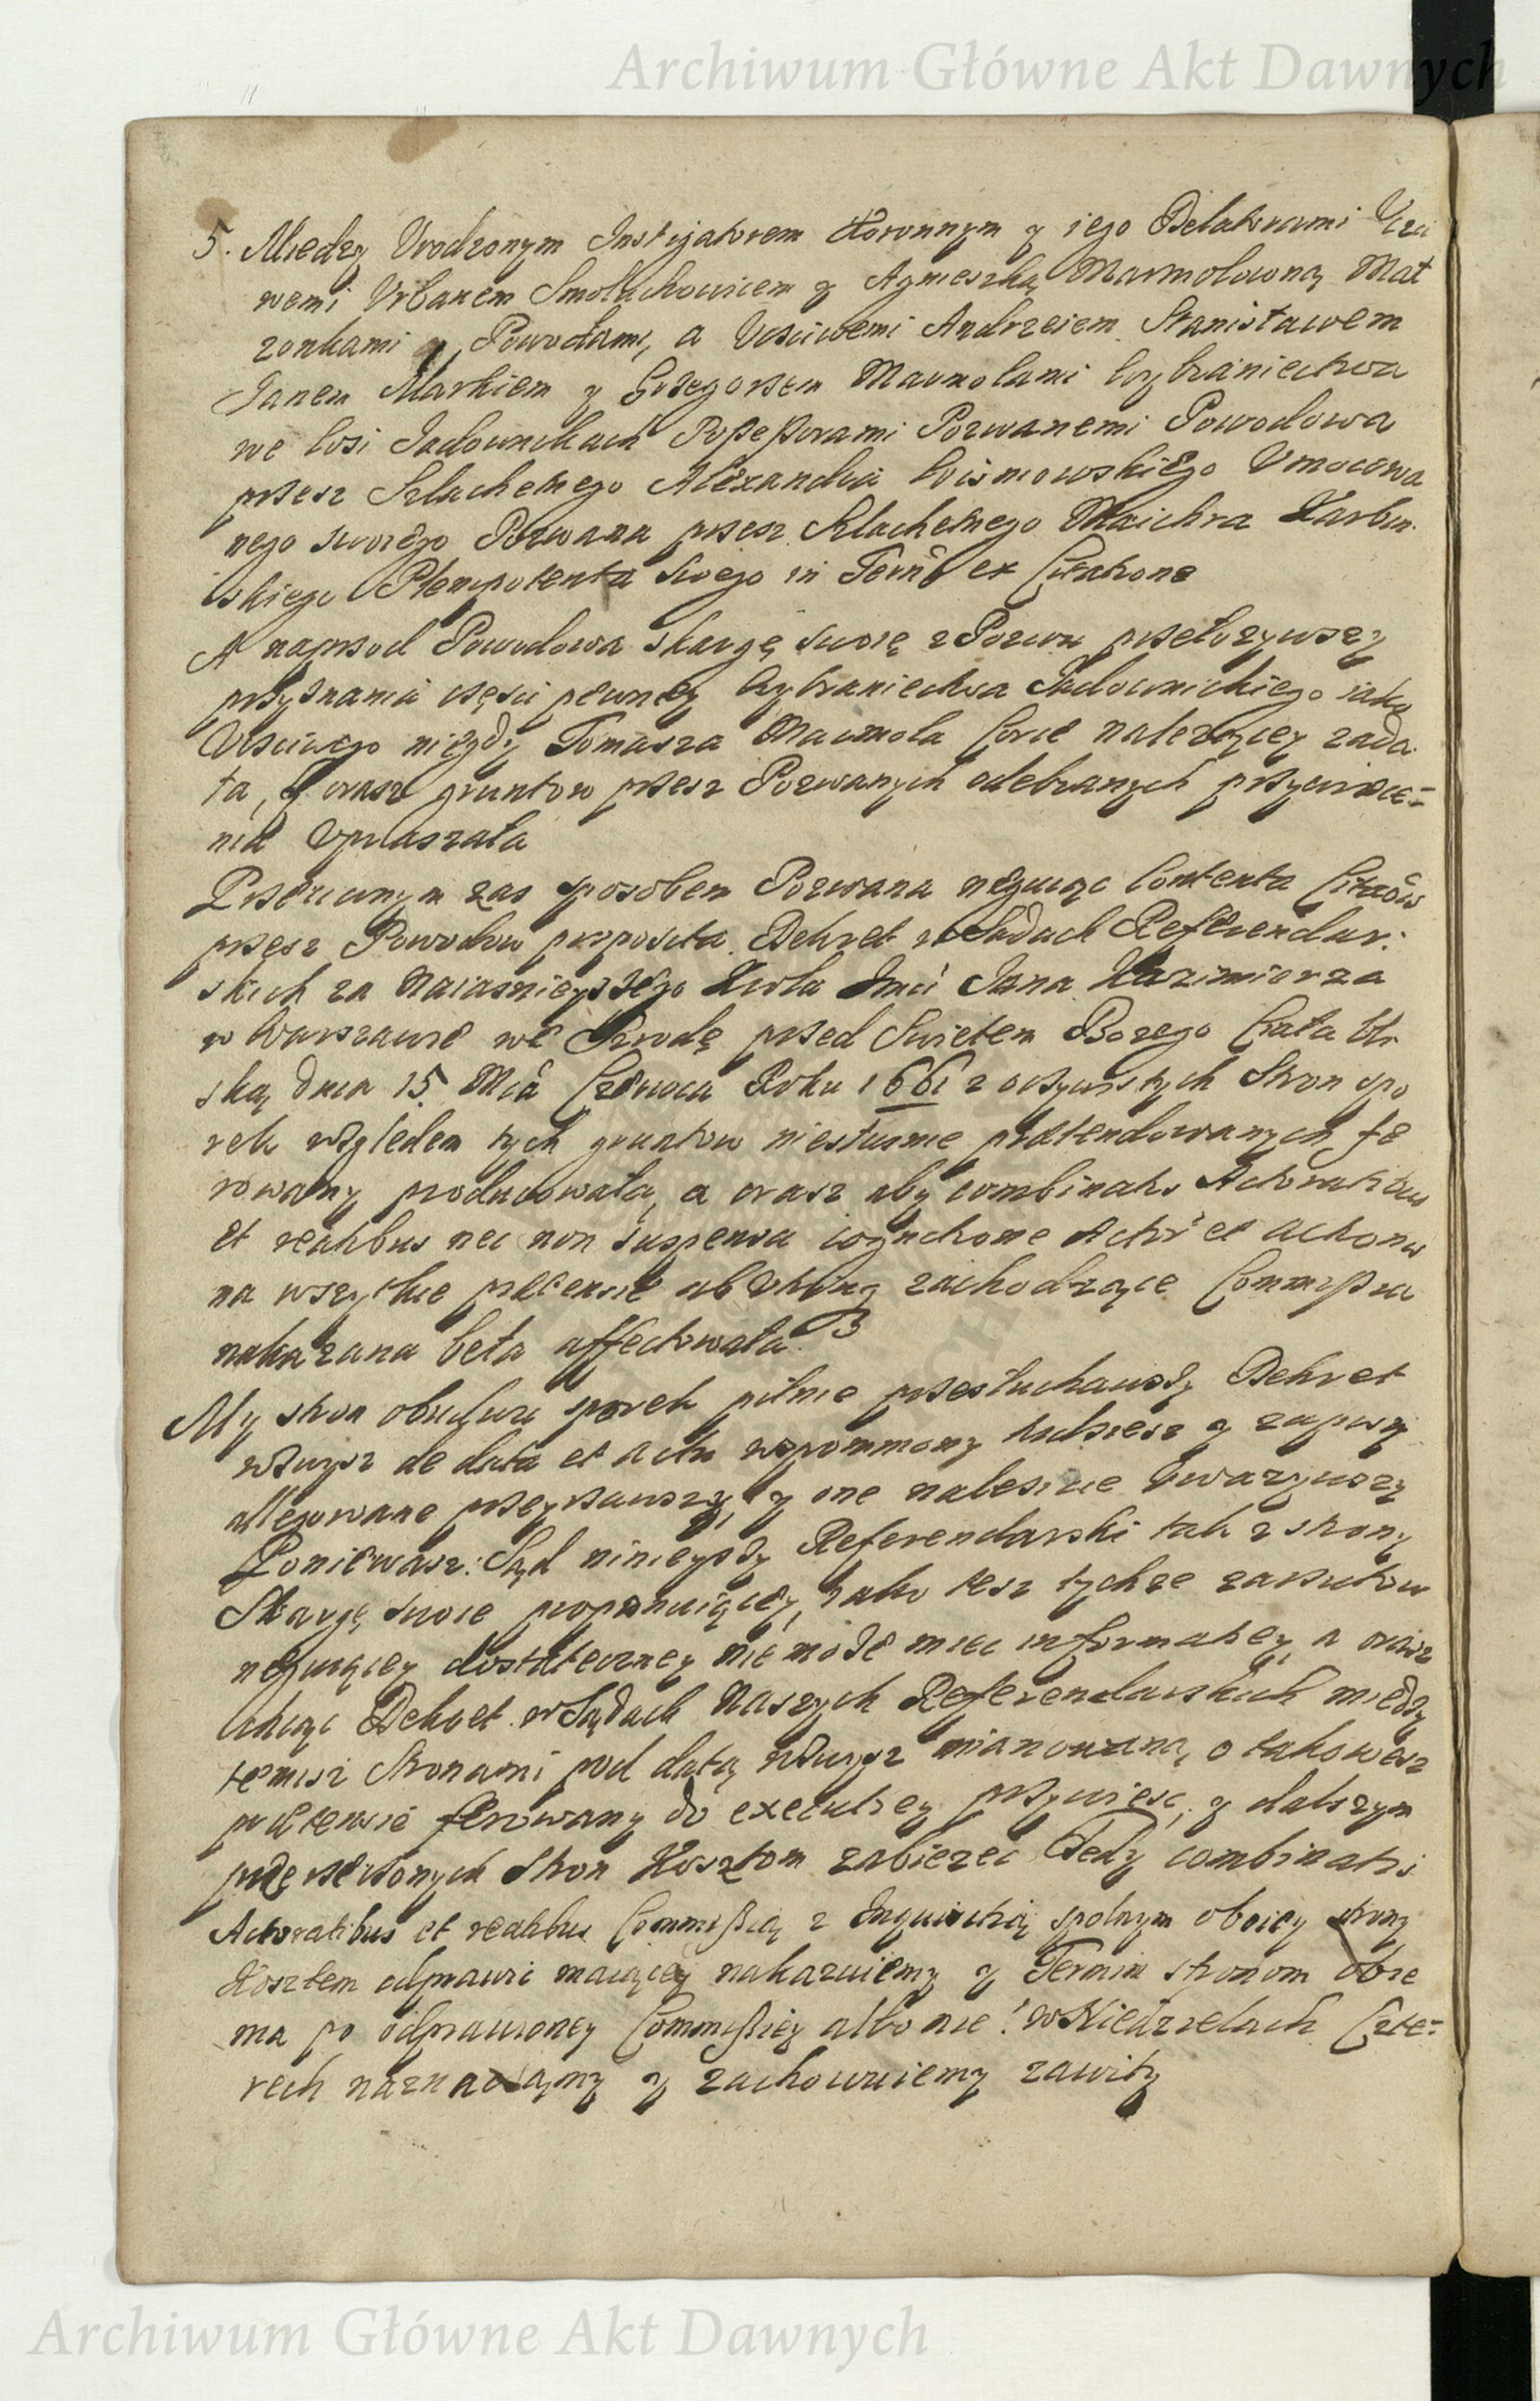 Archiwum Główne Akt Dawnych
5. Miedzy Vrodzonym Instigatorem Koronnym y iego Delatorami Vczci
wemi Vrbanem Smoluchowicem y Agnieszką Marmolowną Mał
zonkami y Powodami, a Vcsciwemi Andrzeiem Stanisławem
Janem Markiem y Grzegorzem Marmolami Wybraniectwa
we Wsi Sadownikach Possessorami Pozwanemi Powodowa
przesz Szlachetnego Alexandra Wisniowskiego Vmocowa
nego swoiego Pozwana przesz Szlachetnego Maichra Karbin
skiego Plenipotenta swego in Term̃o ex Citatione
A naprzod Powodowa skargę swoię z Pozwu przełozywszy
przyznania częsci pewney Wybraniectwa Sadownickiego iako
Vcsciwego niegdy Tomasza Marmola Corce nalezącey ząda
ła, y orasz gruntow przesz Pozwanych odebranych przywroce=
nia Vpraszała
Przeciwnym zas sposobem Pozwana neguiąc Contenta Citaõis
przesz Powodow proposita Dekret w Sądach Referendar:
skich za Naiasnieyszego Krola Jmći Jana Kazimierza
w Warszawie we Srzodę przed Swietem Bozego Ciała
ską dnia 15 Mca Czerwca Roku 1661 z oczywistych Stron spo
rek względem tych gruntow niesłusznie prætendowanych fe
rowany producowała, a orasz aby combinatis Actoratibus
et reatibus nec non suspensa cognitione Act et actionis
na wszytkie prætensie ab utrinq zachodzące Commissia
nakazana beła affectowała
My stron oboiga sporek pilnie przesłuchawszy Dekret
wzwysz de data et actu wspommiony tudziesz y zapisy
allegowane przeyrzawszy, y one nalezicie Vwazywszy
Poniewasz Sąd ninieyszy Referendarski tak z strony
Skargę swoie proponuiącey, iako tesz tychze zarzutow
neguiącey dostateczney nie moze miec informatiey, a orasz
chcąc Dekret w Sądach Naszych Referendarskich między
temisz Stronami pod datą wzwysz mianowaną o takowesz
prætensie ferowany do executiey przywiesc, y dalszym
przerzeczonych Stron Kosztom zabiezec Tedy combinatis
Actoratibus et reatibus Commissią z Inquisitią spolnym oboiey strony
Kosztem odprawic maiącey nakazuiemy y Termin stronom obie
ma po odprawioney Commissiey albo nie w Niedzielach Czte=
rech naznaczamy y zachowuiemy zawity
Archiwum Główne Akt Dawnych